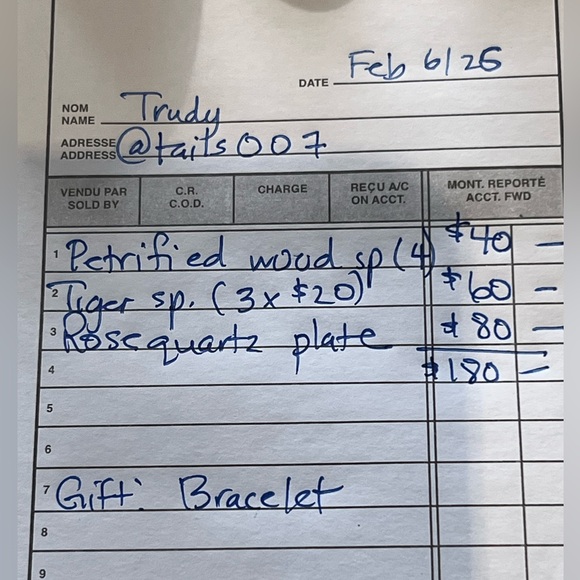 DATE Feb 6/26
NOM
NAME Trudy
ADRESSE
ADDRESS @taits007
VENDU PAR
SOLD BY
C.R.
C.O.D.
CHARGE
REÇU A/C
ON ACCT.
MONT. REPORTÉ
ACCT. FWD
1 Petrified wood sp (4) $40 —
2 Tiger sp. (3 x $20) $60 —
3 Rose quartz plate $80 —
4 $180 —
5
6
7 Gift: Bracelet
8
9